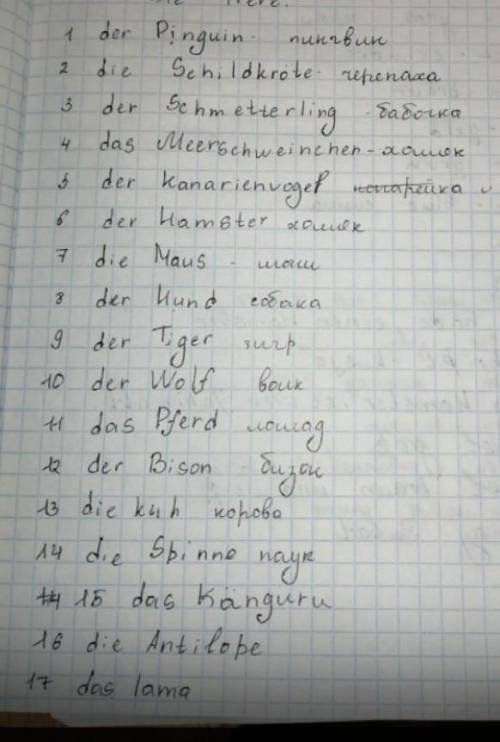 1 der Pinguin - пингвин
2 die Schildkröte - черепаха
3 der Schmetterling - бабочка
4 das Meerschweinchen - хомяк
5 der Kanarienvogel канарейка
6 der Hamster хомяк
7 die Maus - мыш
8 der Hund собака
9 der Tiger тигр
10 der Wolf волк
11 das Pferd лошад
12 der Bison - бизон
13 die kuh корова
14 die Spinne паук
14 15 das Känguru
16 die Antilope
17 das lama